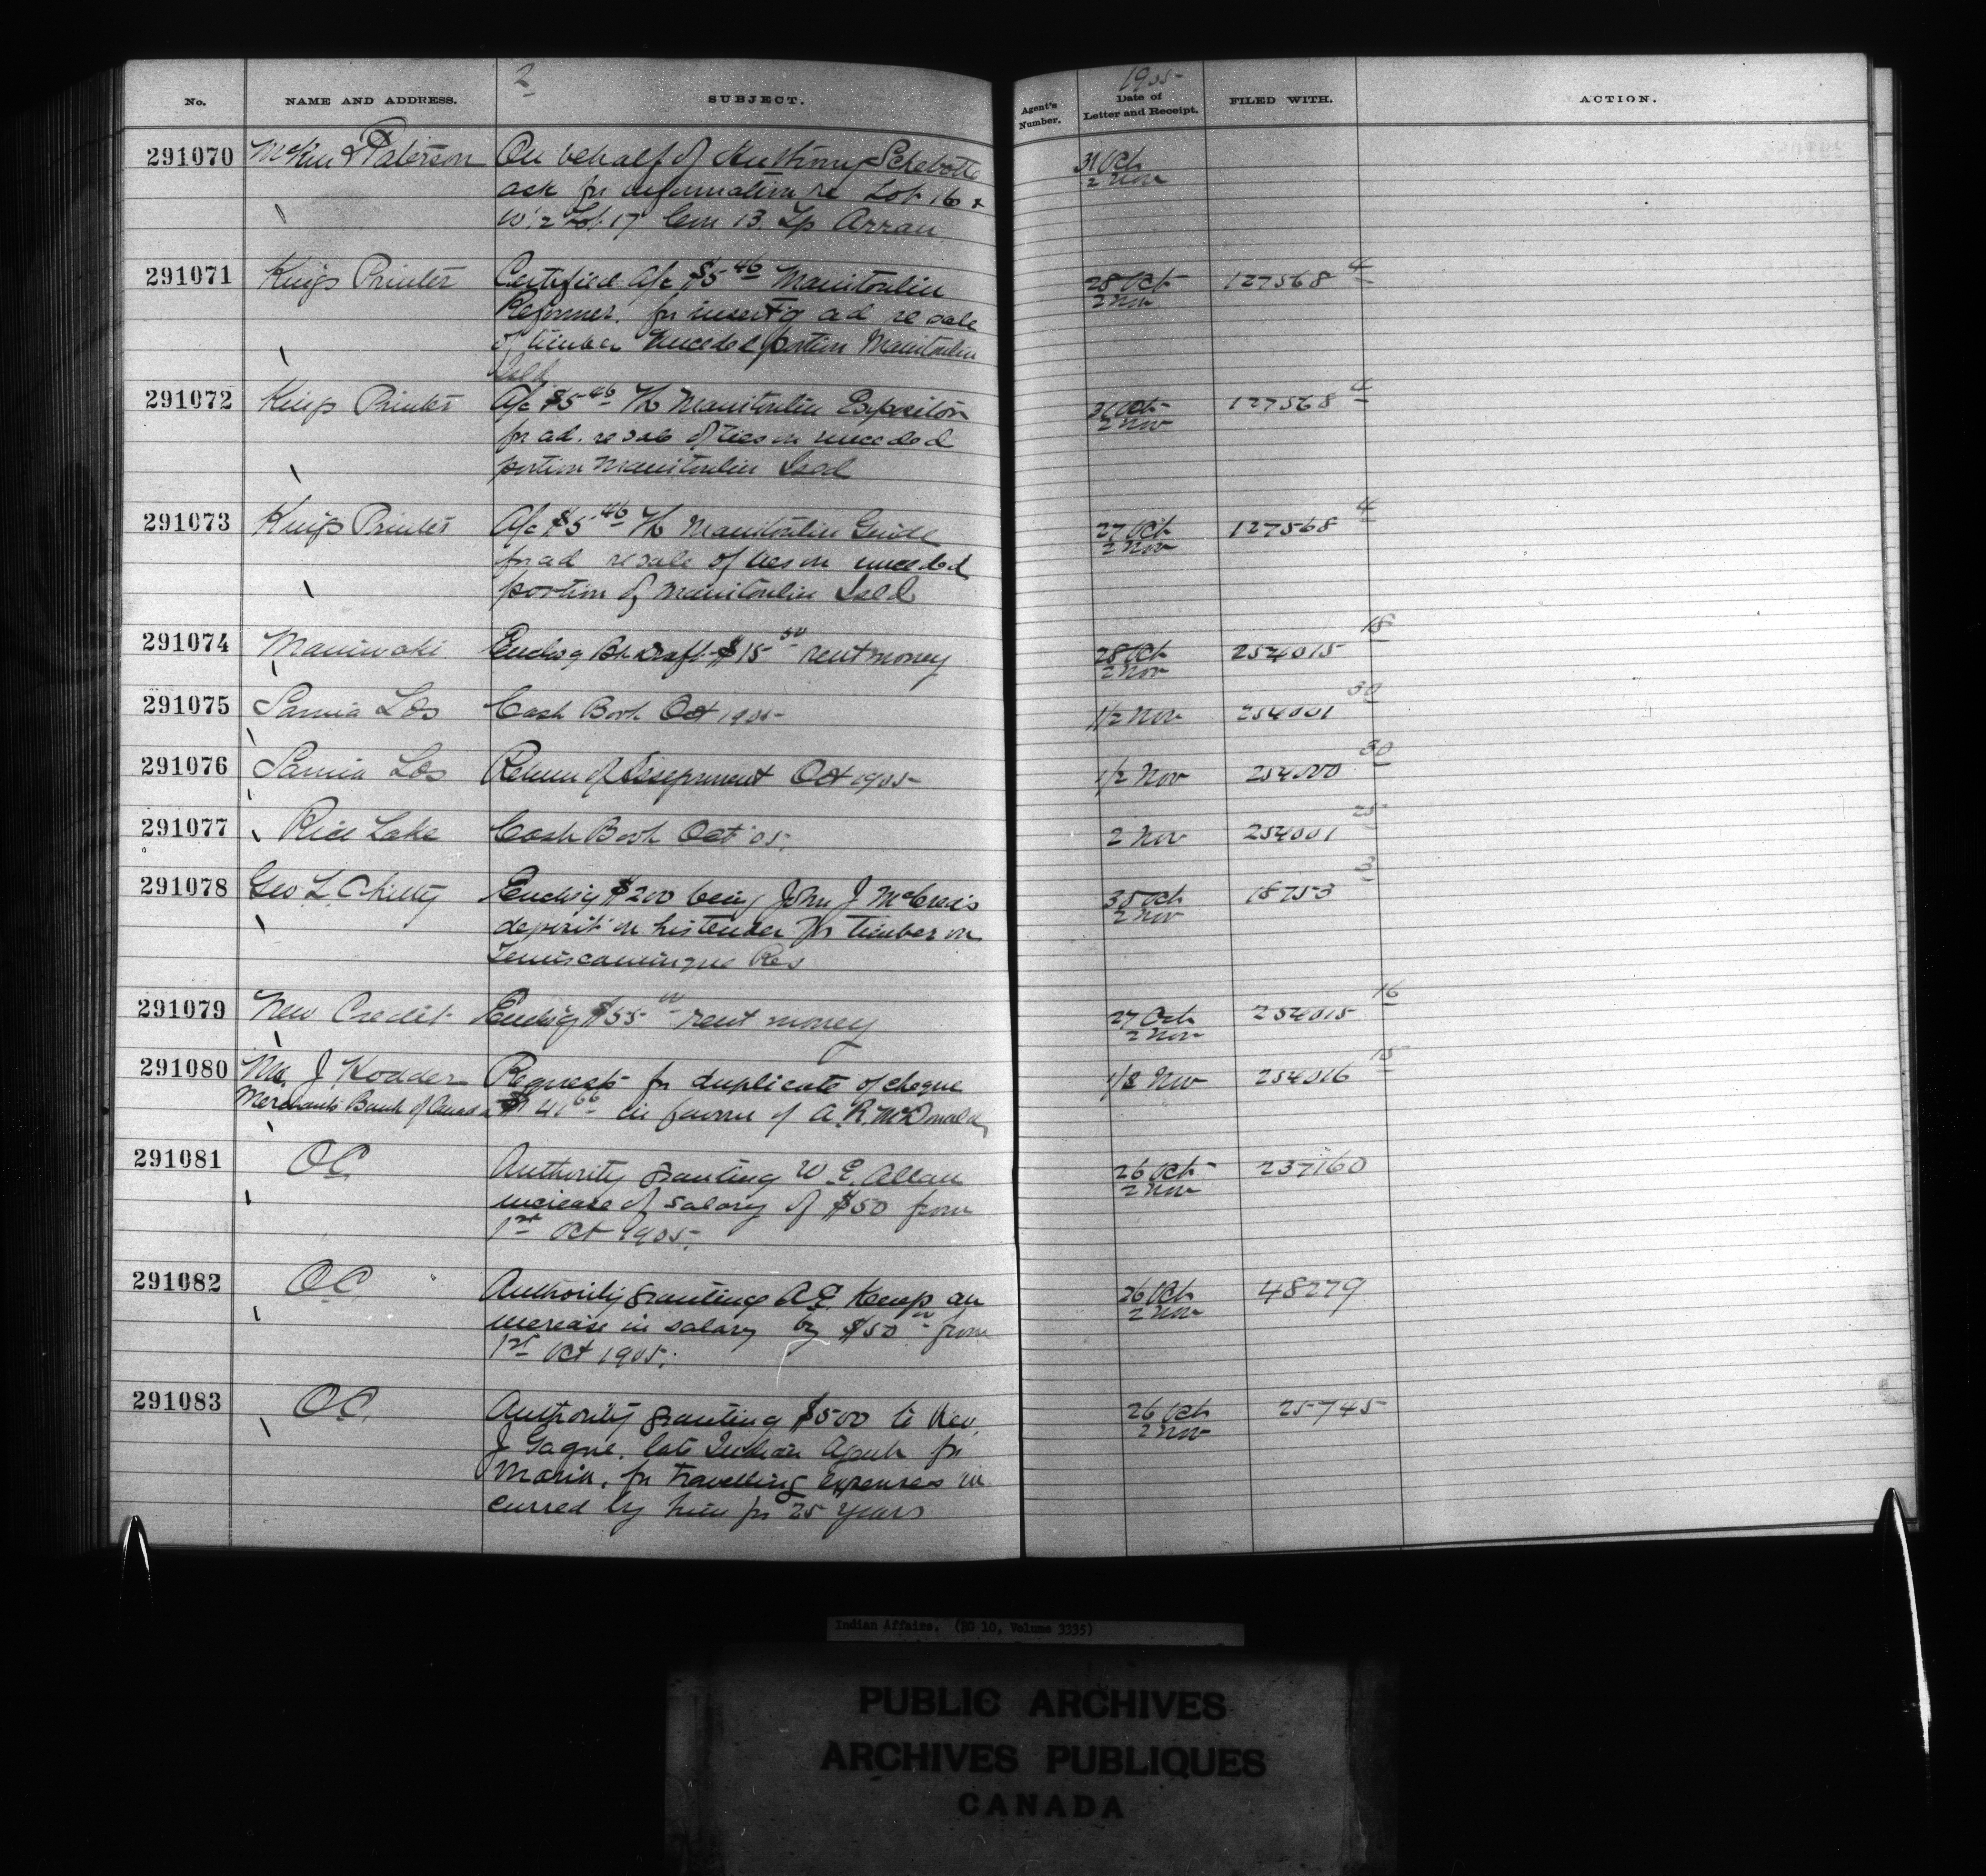 2
1905
No. NAME AND ADDRESS. SUBJECT. Agent's Number. Date of Letter and Receipt. FILED WITH. ACTION.
291070 McKim & Paterson On behalf of Anthony Schebotte 31 Oct
ask for information re Lot 16 & 2 Nov
W. 2 Lot 17 Con 13. Tp Arran
291071 Kings Printer Certified A/c $5 46 Manitoulin 28 Oct 127568 4
Reformer. for insert'g ad re sale 2 Nov
of timber unceded portion Manitoulin
Isld
291072 Kings Printer A/c $5 46 Manitoulin Expositor 31 Oct 127568 4
for ad. re sale of ties on unceded 2 Nov
portion Manitoulin Isld
291073 Kings Printer A/c $5 46 Manitoulin Guide 27 Oct 127568 4
for ad re sale of ties on unceded 2 Nov
portion of Manitoulin Isld
291074 Maniwaki Enclos'g Bk Draft $15 50 rent money 28 Oct 254015 18
2 Nov
291075 Sarnia Los Cash Book Oct 1905 1/2 Nov 254001 30
291076 Sarnia Los Return of Oct 1905 1/2 Nov 254000 30
291077 Rice Lake Cash Book Oct 05. 2 Nov 254001 25
291078 Geo L. Chitty Enclos'g $200 being John J McCrea's 30 Oct 18753 3
deposit on his tender for timber on 2 Nov
Temiscamingue Res
291079 New Credit Enclos'g $55 00 rent money 27 Oct 254015 16
2 Nov
291080 J. Hodder Requests for duplicate of cheque 1/2 Nov 254016 15
Merchants Bank of Canada $41 66 in favour of A. R. McDonald
291081 O.C. Authority granting W. E. Allan 26 Oct 237160
increase of salary of $50 from 2 Nov
1st Oct 1905.
291082 O.C. Authority granting A. E. Kemp an 26 Oct 48279
increase in salary by $50 00 from 2 Nov
1st Oct 1905.
291083 O.C. Authority granting $500 to Rev. 26 Oct 25745
J Gagne. late Indian Agent for 2 Nov
Maria. for travelling expenses in
curred by him for 25 years
Indian Affairs. (RG 10, Volume 3335)
PUBLIC ARCHIVES
ARCHIVES PUBLIQUES
CANADA